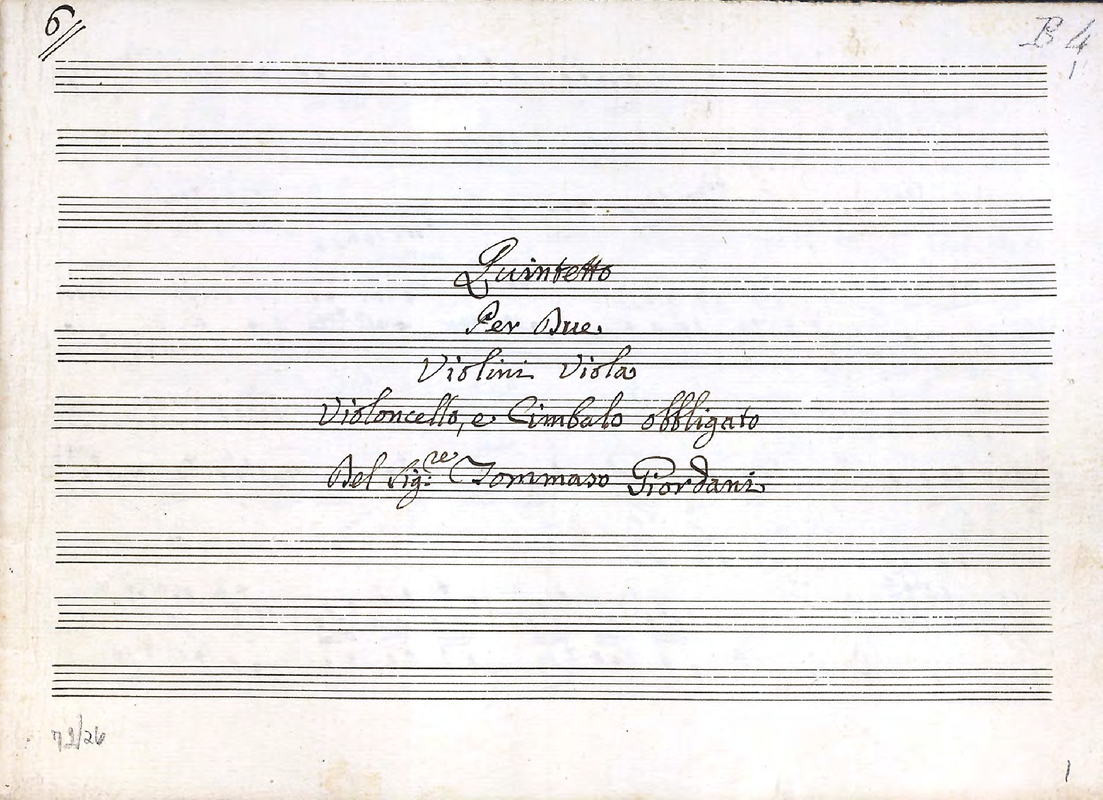 6
B 4
1
Quintetto
Per Due
Violini Viola
Violoncello, e Cimbalo obbligato
Del Sig:re Tommaso Giordani
72/26
1